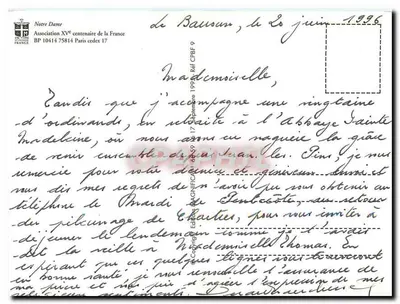 Notre Dame
Association XVe centenaire de la France
BP 10414 75814 Paris cedex 17
Le Barroux, le 20 juin 1996
Mademoiselle,
Tandis que j'accompagne une vingtaine
d'ordinands, en retraite à l'Abbaye Sainte
Madeleine, où nous avons eu naguère la grâce
de venir ensemble les Pins, je vous
remercie pour votre et généreux envoi et
vous dis mes regrets de n'avoir pu vous obtenir au
téléphone le Mardi de Pentecôte, au retour
du pèlerinage de Chartres, pour vous inviter à
déjeuner le lendemain comme je l'avais
dit la veille à Mademoiselle Thomas. En
espérant que ces quelques lignes vous trouveront
en bonne santé, je vous renouvelle l'assurance de
ma prière et vous prie d'agréer l'expression de mes